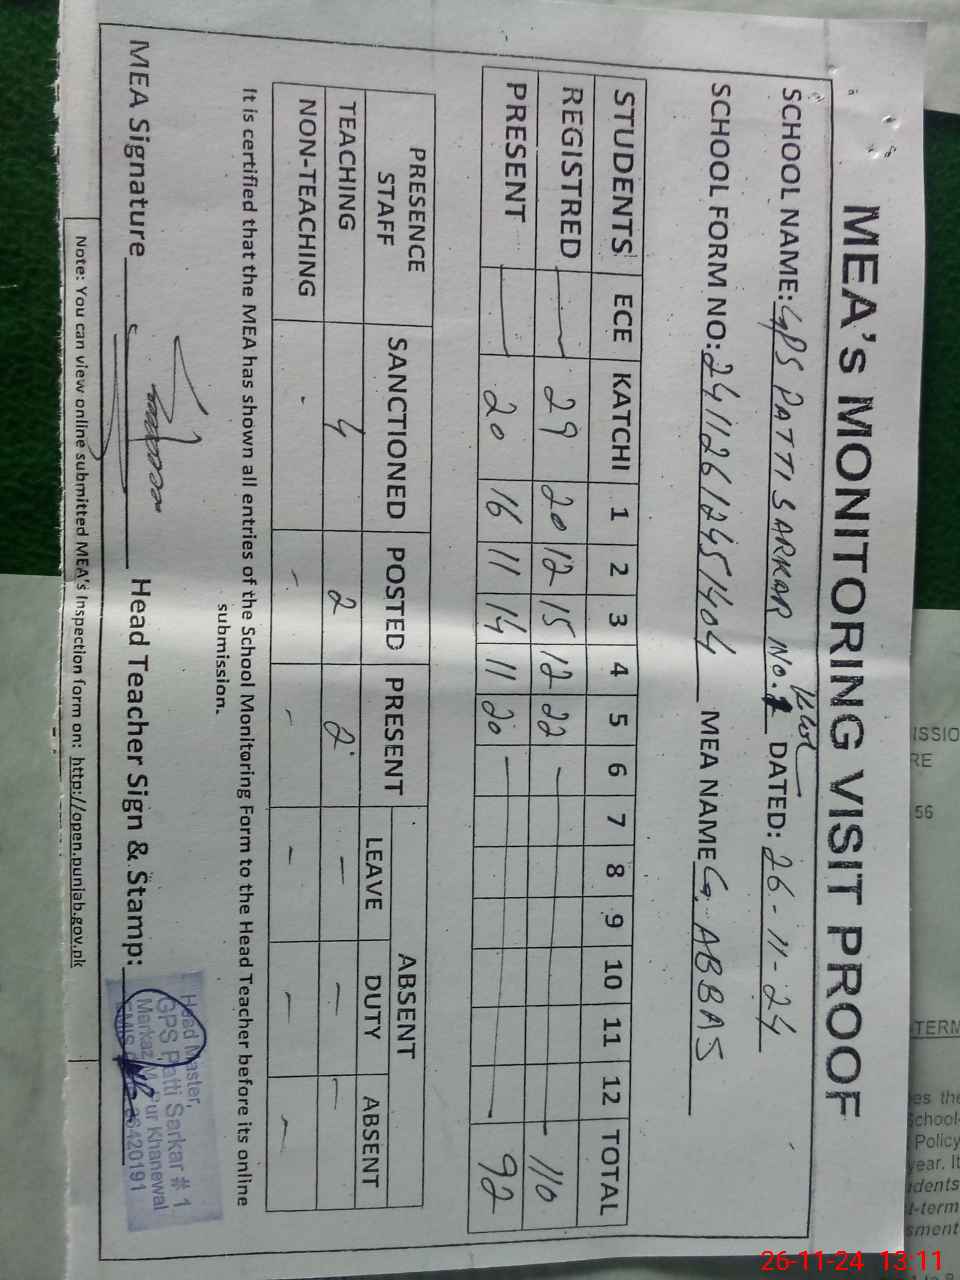 MEA's MONITORING VISIT PROOF
SCHOOL NAME: GPS PATTI SARKAR No.1 DATED: 26-11-24
SCHOOL FORM NO: 241126124951404 MEA NAME G. ABBAS
STUDENTS ECE KATCHI 1 2 3 4 5 6 7 8 9 10 11 12 TOTAL
REGISTRED — 29 20 12 15 12 22 — 110
PRESENT — 20 16 11 14 11 20 — 92
PRESENCE STAFF SANCTIONED POSTED PRESENT ABSENT
LEAVE DUTY ABSENT
TEACHING 4 2 2 — — —
NON-TEACHING - - - - - -
It is certified that the MEA has shown all entries of the School Monitoring Form to the Head Teacher before its online
submission.
MEA Signature Head Teacher Sign & Stamp:
Head Master,
GPS Patti Sarkar # 1
Markaz Pur Khanewal
EMIS 36420191
Note: You can view online submitted MEA's Inspection form on: http://open.punjab.gov.pk
ISSIO
RE
56
TERM
es the
School-
Policy
year. It
udents
t-term
sment
26-11-24 13:11